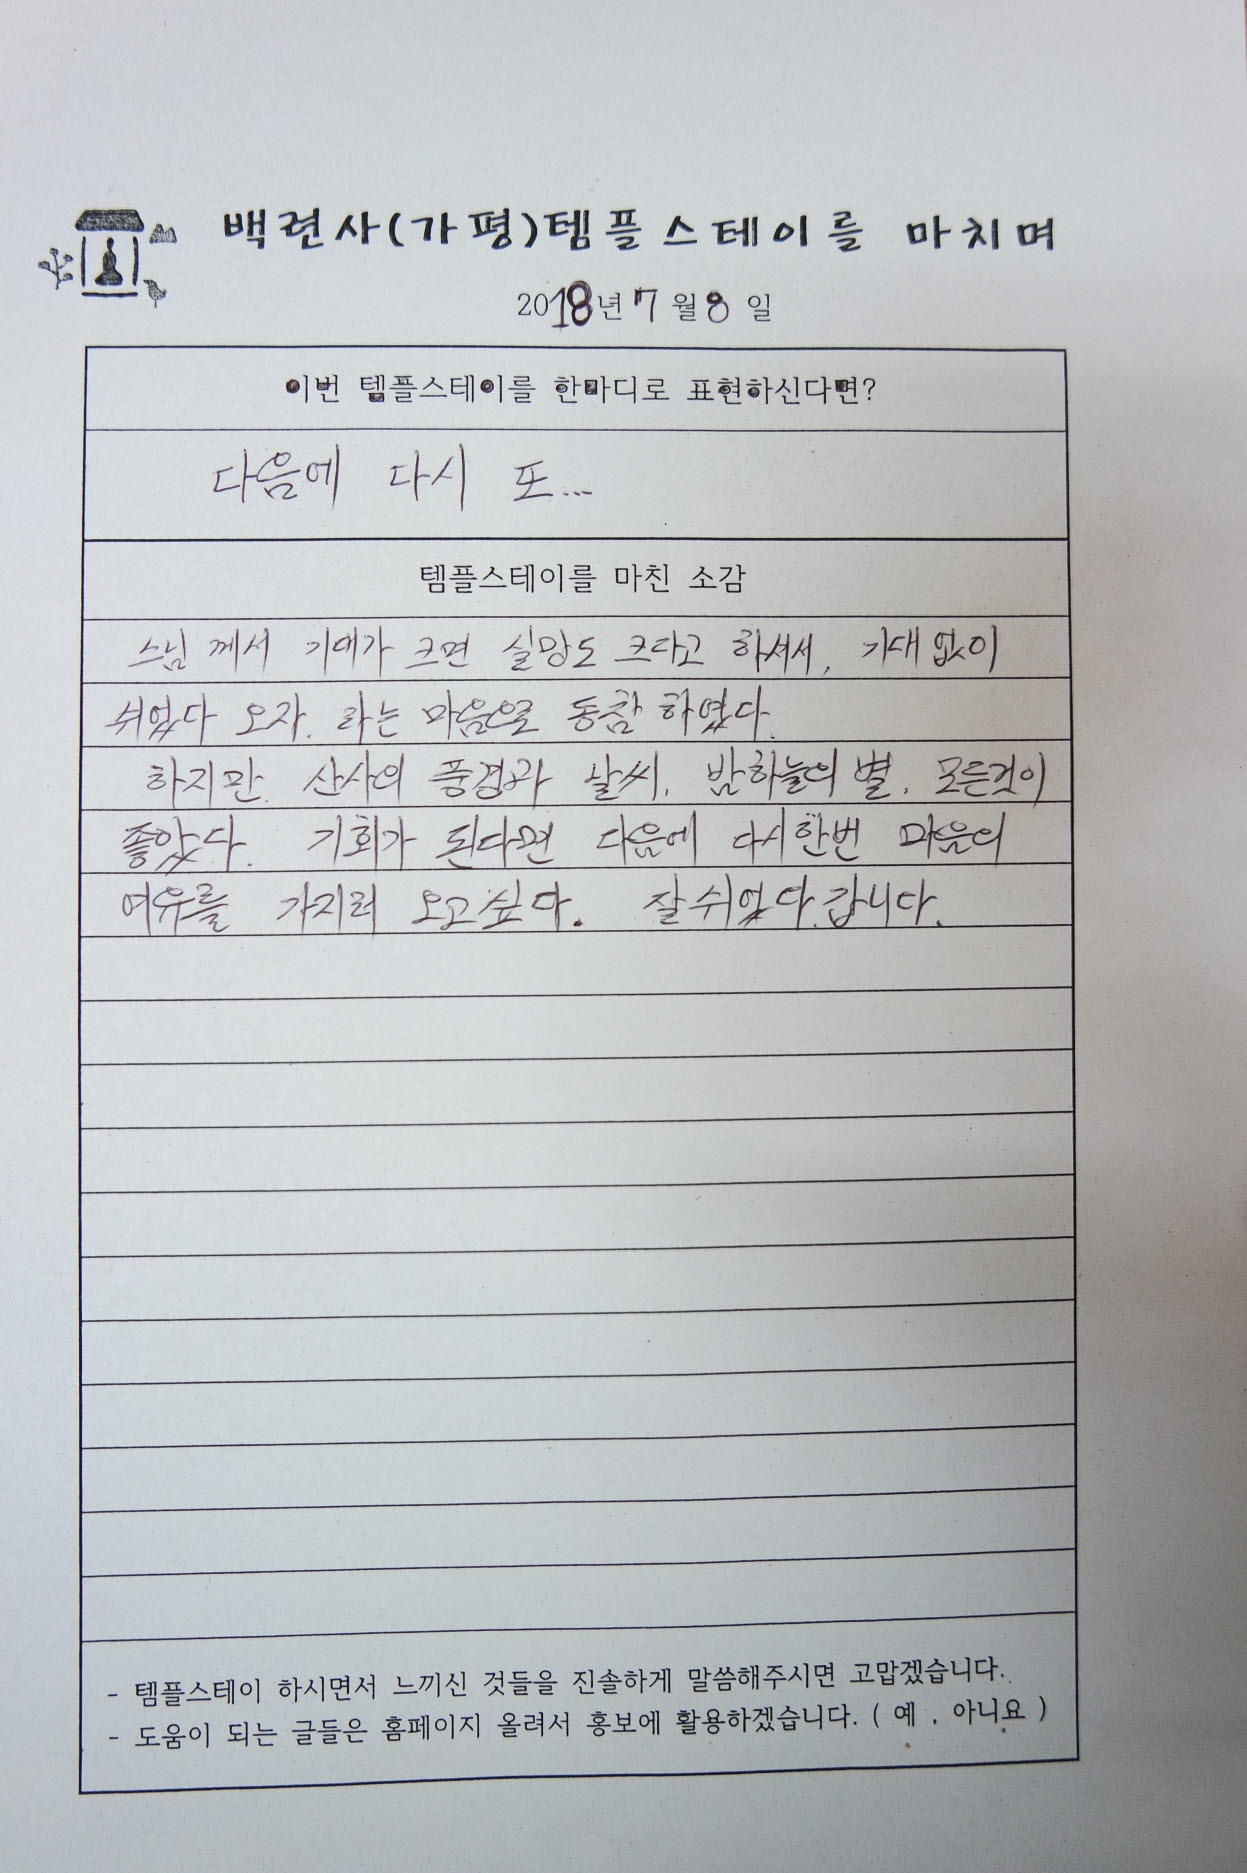 백련사(가평)템플스테이를 마치며
2018년 7월 8일
이번 템플스테이를 한마디로 표현하신다면?
다음에 다시 또...
템플스테이를 마친 소감
스님 께서 기대가 크면 실망도 크다고 하셔서, 기대 없이
쉬었다 오자. 라는 마음으로 동참 하였다.
하지만, 산사의 풍경과 날씨, 밤하늘의 별, 모든것이
좋았다. 기회가 된다면 다음에 다시한번 마음의
여유를 가지러 오고싶다. 잘 쉬었다.갑니다.
- 템플스테이 하시면서 느끼신 것들을 진솔하게 말씀해주시면 고맙겠습니다.
- 도움이 되는 글들은 홈페이지 올려서 홍보에 활용하겠습니다. ( 예 , 아니요 )